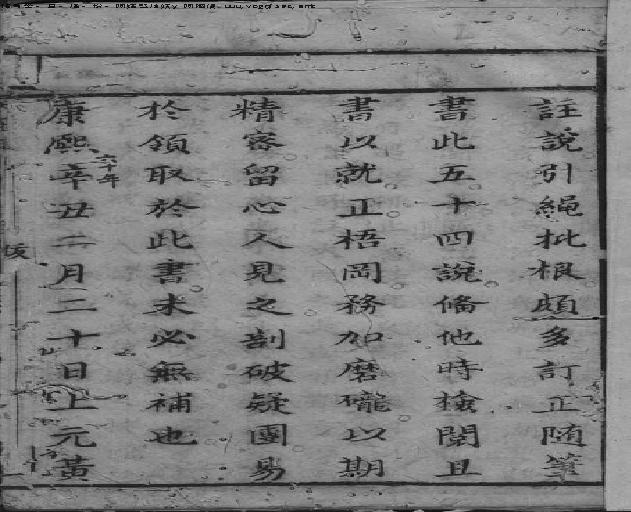 註說引繩批根頗多訂正随筆
書此五十四說俻他時撿閱且
書以就正梧岡務加磨礲以期
精宻留心人見之剖破疑團易
扵領取於此書未必無補也
康熙辛丑二月二十日上元黃
六十年